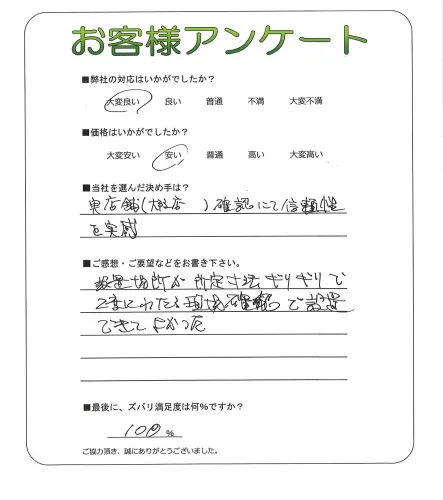 お客様アンケート
■弊社の対応はいかがでしたか?
大変良い 良い 普通 不満 大変不満
■価格はいかがでしたか?
大変安い 安い 普通 高い 大変高い
■当社を選んだ決め手は?
実店舗(大阪店 )確認にて信頼性
を実感
■ご感想・ご要望などをお書き下さい。
設置場所が所定寸法ギリギリで
2度にわたる現場確認で設置
できてよかった
■最後に、ズバリ満足度は何%ですか?
100%
ご協力頂き、誠にありがとうございました。